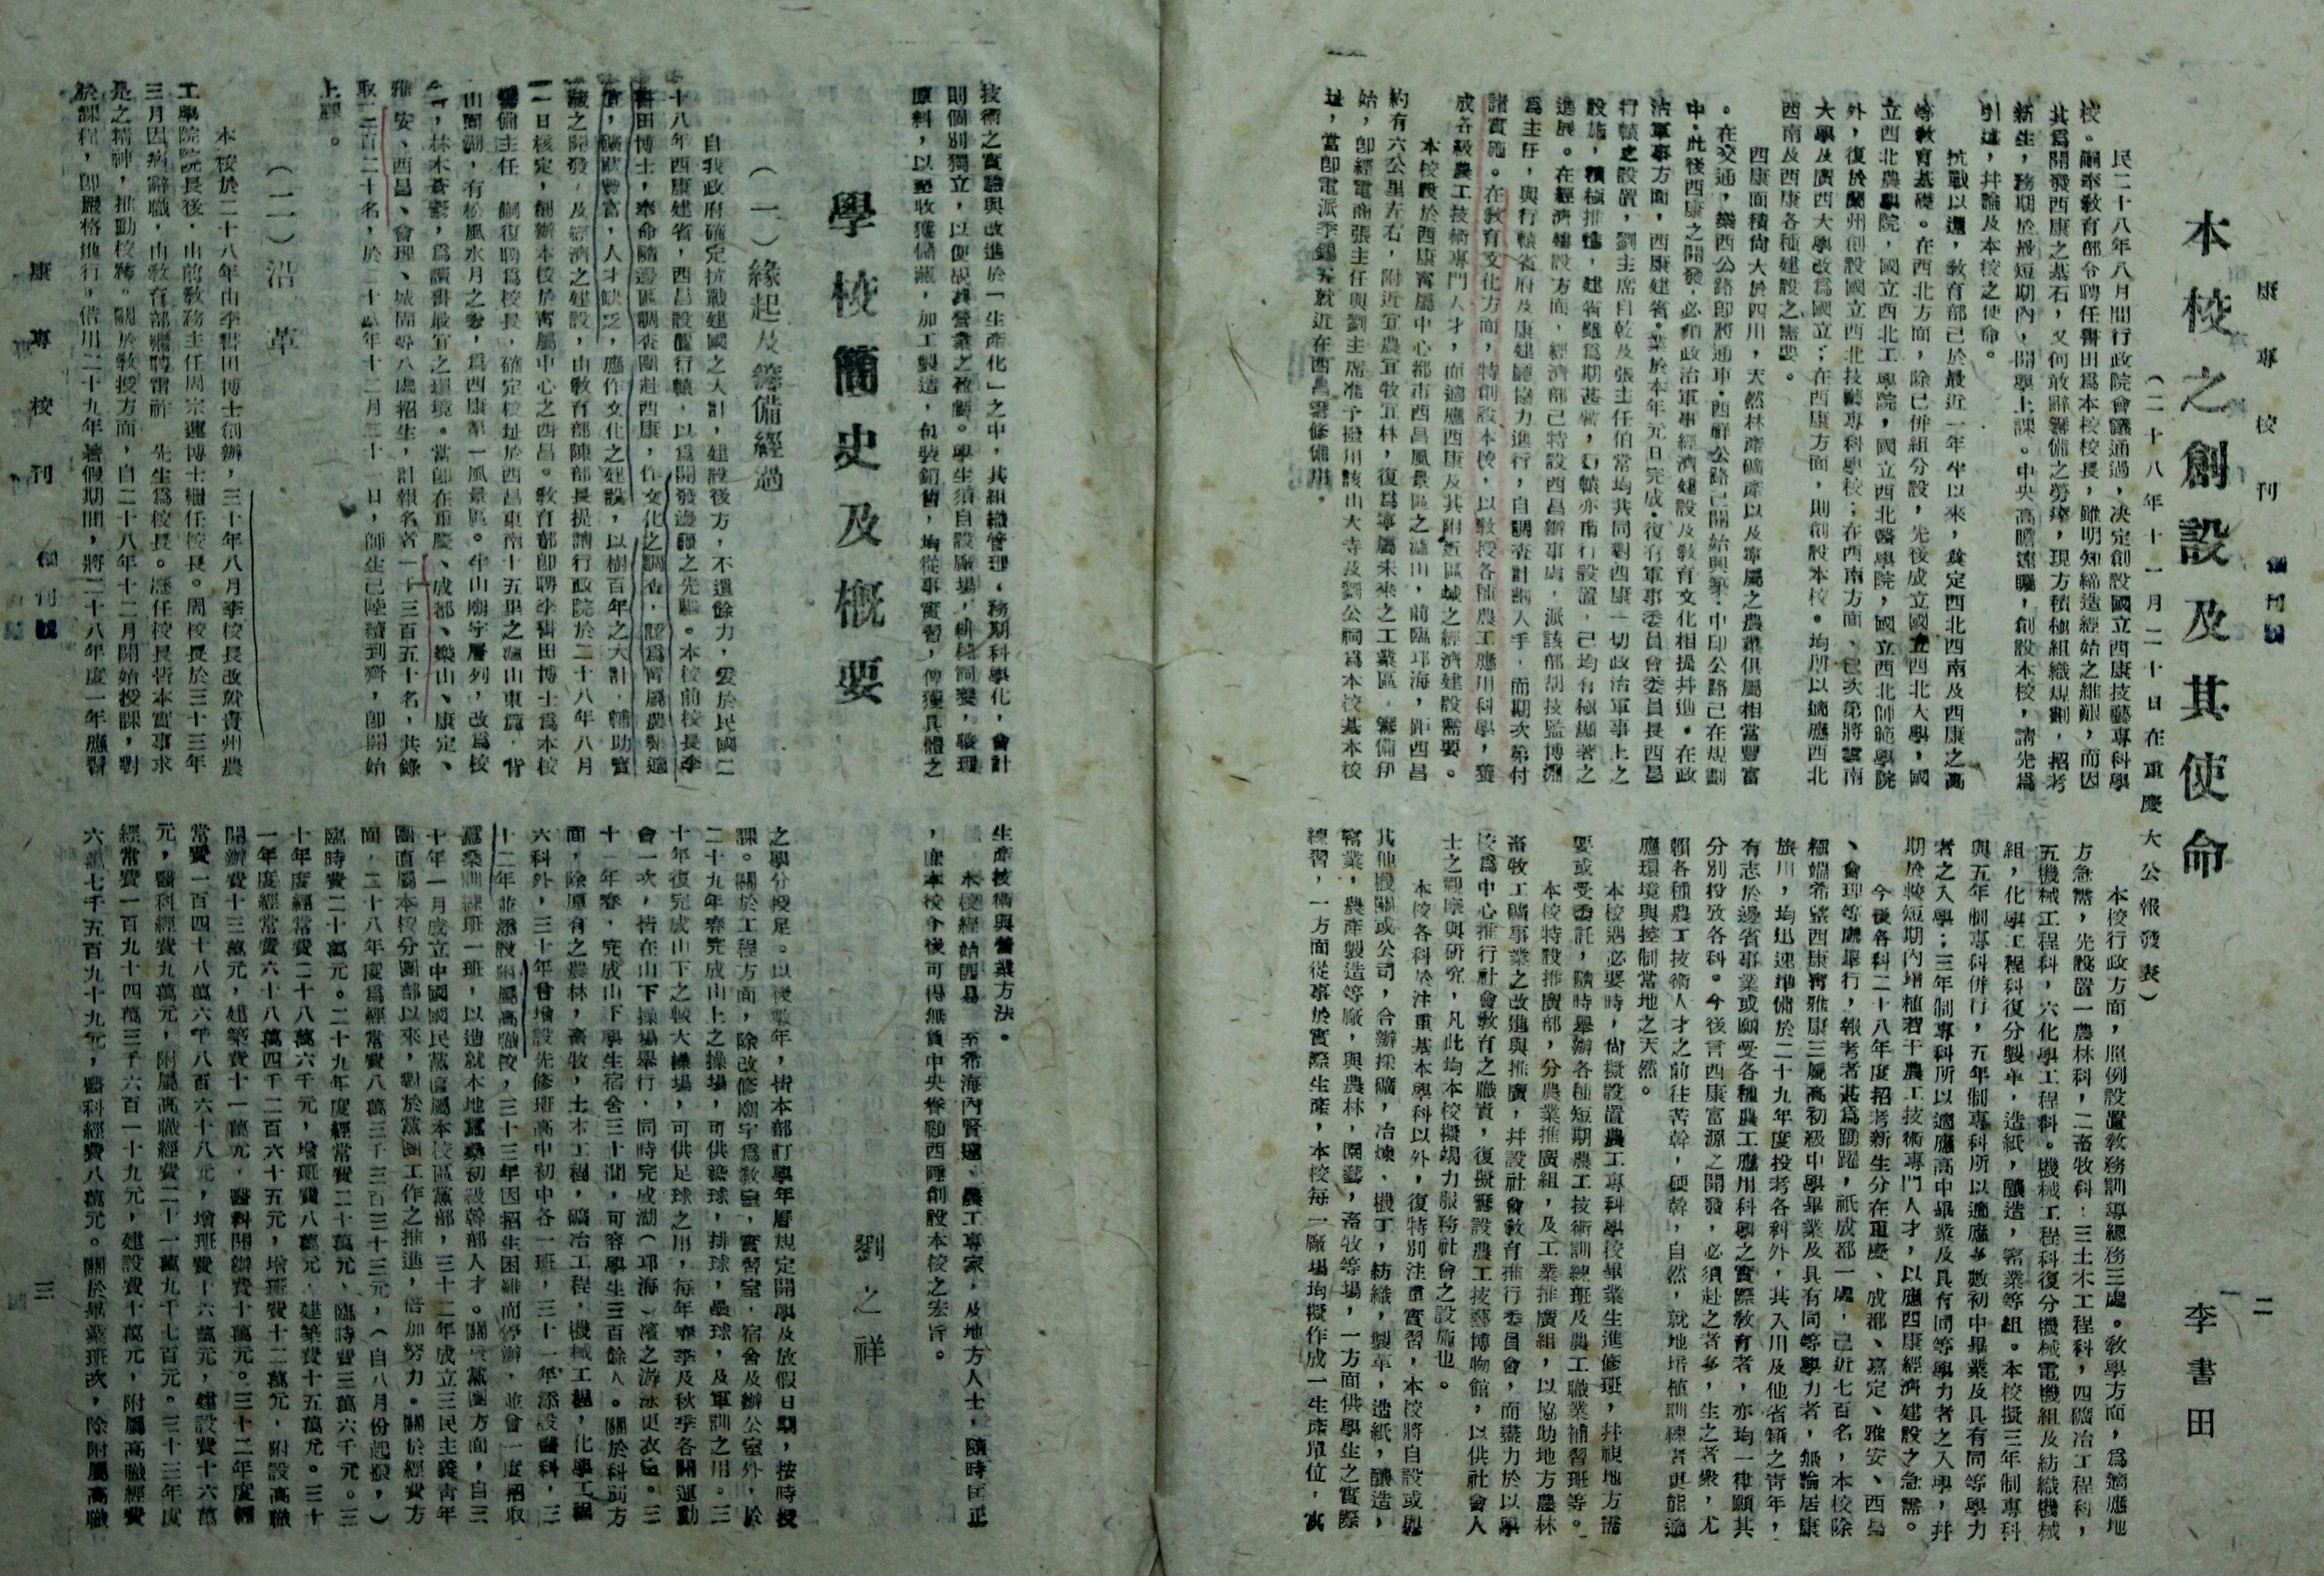 康專校刊　創刊號　二
本校之創設及其使命　李書田
（二十八年十一月二十日在重慶大公報發表）
民二十八年八月間行政院會議通過，決定創設國立西康技藝專科學
校。嗣奉教育部令聘任書田為本校校長，雖明知締造經始之維艱，而因
其為開發西康之基石，又何敢辭籌備之勞瘁，現方積極組織規劃，招考
新生，務期於最短期內，開學上課。中央高瞻遠矚，創設本校，請先為
引述，并論及本校之使命。
抗戰以還，教育部已於最近一年半以來，奠定西北西南及西康之高
等教育基礎。在西北方面，除已併組分設，先後成立國立西北大學，國
立西北農學院，國立西北工學院，國立西北醫學院，國立西北師範學院
外，復於蘭州創設國立西北技藝專科學校；在西南方面，已次第將雲南
大學及廣西大學改為國立；在西康方面，則創設本校。均所以適應西北
西南及西康各種建設之需要。
西康面積尚大於四川，天然林產礦產以及寧屬之農業俱屬相當豐富
。在交通，樂西公路即將通車，西祥公路已開始興築，中印公路已在規劃
中，此後西康之開發，必須政治軍事經濟建設及教育文化相提并進。在政
治軍事方面，西康建省，業於本年元日完成，復有軍事委員會委員長西昌
行轅之設置，劉主席自乾及張主任伯常均共同對西康一切政治軍事上之
設施，積極推進，建省雖為期甚暫，行轅亦甫行設置，已均有極顯著之
進展。在經濟建設方面，經濟部已特設西昌辦事處，派該部胡技監博淵
為主任，與行轅省府及康建廳協力進行，自調查計劃入手，而期次第付
諸實施。在教育文化方面，特創設本校，以教授各種農工應用科學，養
成各級農工技術專門人才，而適應西康及其附近區域之經濟建設需要。
本校設於西康寧屬中心都市西昌風景區之瀘山，前臨邛海，距西昌
約有六公里左右，附近宜農宜牧宜林，復為寧屬未來之工業區。籌備伊
始，卽經電商張主任與劉主席准予撥用該山大寺及劉公祠為本校基本校
址，當卽電派李錫五就近在西昌籌修備用。
本校行政方面，照例設置教務訓導總務三處。教學方面，為適應地
方急需，先設置一農林科，二畜牧科，三土木工程科，四礦冶工程科，
五機械工程科，六化學工程科。機械工程科復分機械電機組及紡織機械
組，化學工程科復分製革，造紙，釀造，窰業等組。本校擬三年制專科
與五年制專科併行，五年制專科所以適應多數初中畢業及具有同等學力
者之入學；三年制專科所以適應高中畢業及具有同等學力者之入學，并
期於較短期內增植若干農工技術專門人才，以應西康經濟建設之急需。
今後各科二十八年度招考新生分在重慶、成都、嘉定、雅安、西昌
、會理等處舉行，報考者甚為踴躍，祇成都一處，已近七百名，本校除
極端希望西康寧雅康三屬高初級中學畢業及具有同等學力者，無論居康
旅川，均迅速準備於二十九年度投考各科外，其入川及他省籍之青年，
有志於邊省事業或願受各種農工應用科學之實際教育者，亦均一律願其
分別投考各科。今後言西康富源之開發，必須赴之者多，生之者衆，尤
賴各種農工技術人才之前往苦幹，硬幹，自然，就地培植訓練者更能適
應環境與控制當地之天然。
本校遇必要時，尚擬設置農工專科學校畢業生進修班，并視地方需
要或受委託，隨時舉辦各種短期農工技術訓練班及農工職業補習班等。
本校特設推廣部，分農業推廣組，及工業推廣組，以協助地方農林
畜牧工礦事業之改進與推廣，并設社會教育推行委員會，而盡力於以學
校為中心推行社會教育之職責，復擬籌設農工技藝博物館，以供社會人
士之觀摩與研究，凡此均本校擬竭力服務社會之設施也。
本校各科於注重基本學科以外，復特別注重實習，本校將自設或與
其他機關或公司，合辦採礦，冶煉，機工，紡織，製革，造紙，釀造，
窰業，農產製造等廠，與農林，園藝，畜牧等場，一方面供學生之實際
練習，一方面從事於實際生產，本校每一廠場均擬作成一生產單位，寓
技術之實驗與改進於「生產化」之中，其組織管理，務期科學化，會計
則個別獨立，以便說具營業之務薪。學生須自設廠場，耕種飼養，發理
原料，以至收獲儲藏，加工製造，包裝銷售，均從事實習，俾獲具體之
生產技術與營業方法。
本校經始匪易，至希海內賢達，農工專家，及地方人士，隨時匡正
，庶本校今後可得無負中央眷顧西陲創設本校之宏旨。
學校簡史及概要　劉之祥
（一）緣起及籌備經過
自我政府確定抗戰建國之大計，建設後方，不遺餘力，爰於民國二
十八年西康建省，西昌設置行轅，以為開發邊疆之先驅。本校前校長李
書田博士，奉命隨邊區調查團赴西康，作文化之調查，認為寧屬農業適
宜，礦藏豐富，人才缺乏，應作文化之建設，以樹百年之大計，輔助寶
藏之開發，及經濟之建設，由教育部陳部長提請行政院於二十八年八月
一日核定，創辦本校於寧屬中心之西昌。教育部卽聘李書田博士為本校
籌備主任，嗣復聘為校長，確定校址於西昌東南十五里之瀘山東麓，背
山面湖，有松風水月之勝，為西康第一風景區。半山廟宇層列，改為校
舍，林木蒼鬱，為讀書最宜之環境。當卽在重慶、成都、樂山、康定、
雅安、西昌、會理、城固等八處招生，計報名者一千三百五十名，共錄
取二百二十名，於二十八年十二月三十一日，師生已陸續到齊，卽開始
上課。
（二）沿革
本校於二十八年由李書田博士創辦，三十年八月李校長改就貴州農
工學院院長後，由前教務主任周宗蓮博士繼任校長。周校長於三十三年
三月因病辭職，由教育部續聘雷祚　先生為校長。歷任校長皆本實事求
是之精神，推動校務。關於教授方面，自二十八年十二月開始授課，對
於課程，卽嚴格進行，借用二十九年暑假期間，將二十八年度一年應習
之學分授足。以後數年，皆本部訂學年曆規定開學及放假日期，按時授
課。關於工程方面，除改修廟宇為教室，實習室，宿舍及辦公室外，於
二十九年春完成山上之操場，可供籃球，排球，壘球，及軍訓之用。三
十年復完成山下之較大操場，可供足球之用，每年春季及秋季各開運動
會一次，皆在山下操場舉行，同時完成湖（邛海）濱之游泳更衣室。三
十一年春，完成山下學生宿舍三十間，可容學生三百餘人。關於科別方
面，除原有之農林，畜牧，土木工程，礦冶工程，機械工程，化學工程
六科外，三十年曾增設先修班高中初中各一班，三十一年添設醫科，三
十二年並添設附屬高職校，三十三年因招生困難而停辦，並曾一度招取
蠶桑訓練班一班，以造就本地蠶桑初級幹部人才。關於黨團方面，自三
十年一月成立中國國民黨直屬本校區黨部，三十二年成立三民主義青年
團直屬本校分團部以來，對於黨團工作之推進，倍加努力。關於經費方
面，二十八年度為經常費八萬三千三百三十三元，（自八月份起撥，）
臨時費二十萬元。二十九年度經常費二十萬元，臨時費三萬六千元。三
十年度經常費二十八萬六千元，增班費八萬元，建築費十五萬元。三十
一年度經常費六十八萬四千二百六十五元，增班費十二萬元，附設高職
開辦費十三萬元，建築費十一萬元，醫科開辦費十萬元。三十二年度經
常費一百四十八萬六千八百六十八元，增班費十六萬元，建設費十六萬
元，醫科經費九萬元，附屬高職經費二十一萬九千七百元。三十三年度
經常費一百九十四萬三千六百一十九元，建設費十萬元，附屬高職經費
六萬七千五百九十九元，醫科經費八萬元。關於畢業班次，除附屬高職
康專校刊　創刊號　三